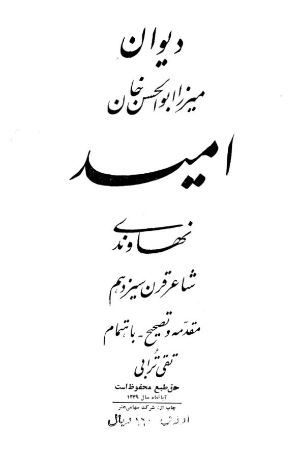 دیوان
میرزا ابوالحسن خان
امید
نهاوندی
شاعر قرن سیزدهم
مقدمه و تصحیح - باهتمام
تقی ترابی
حق طبع محفوظ است
سال ۱۳۳۹
چاپ از: شرکت سهامی
ریال